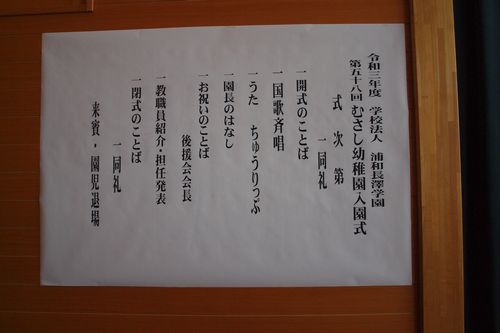 令和三年度 学校法人 浦和長澤学園
第五十八回 むさし幼稚園入園式
式次第
一同礼
一開式のことば
一国歌斉唱
一うた ちゅうりっぷ
一園長のはなし
一お祝いのことば
後援会会長
一教職員紹介・担任発表
一閉式のことば
一同礼
来賓・園児退場